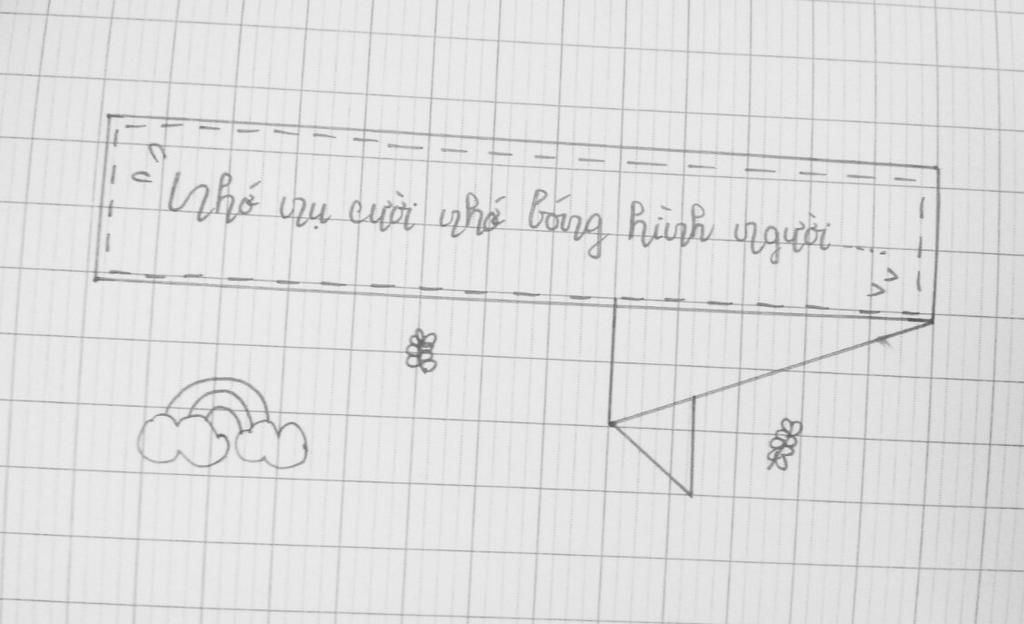 "Nhớ nụ cười nhớ bóng hình người ...."